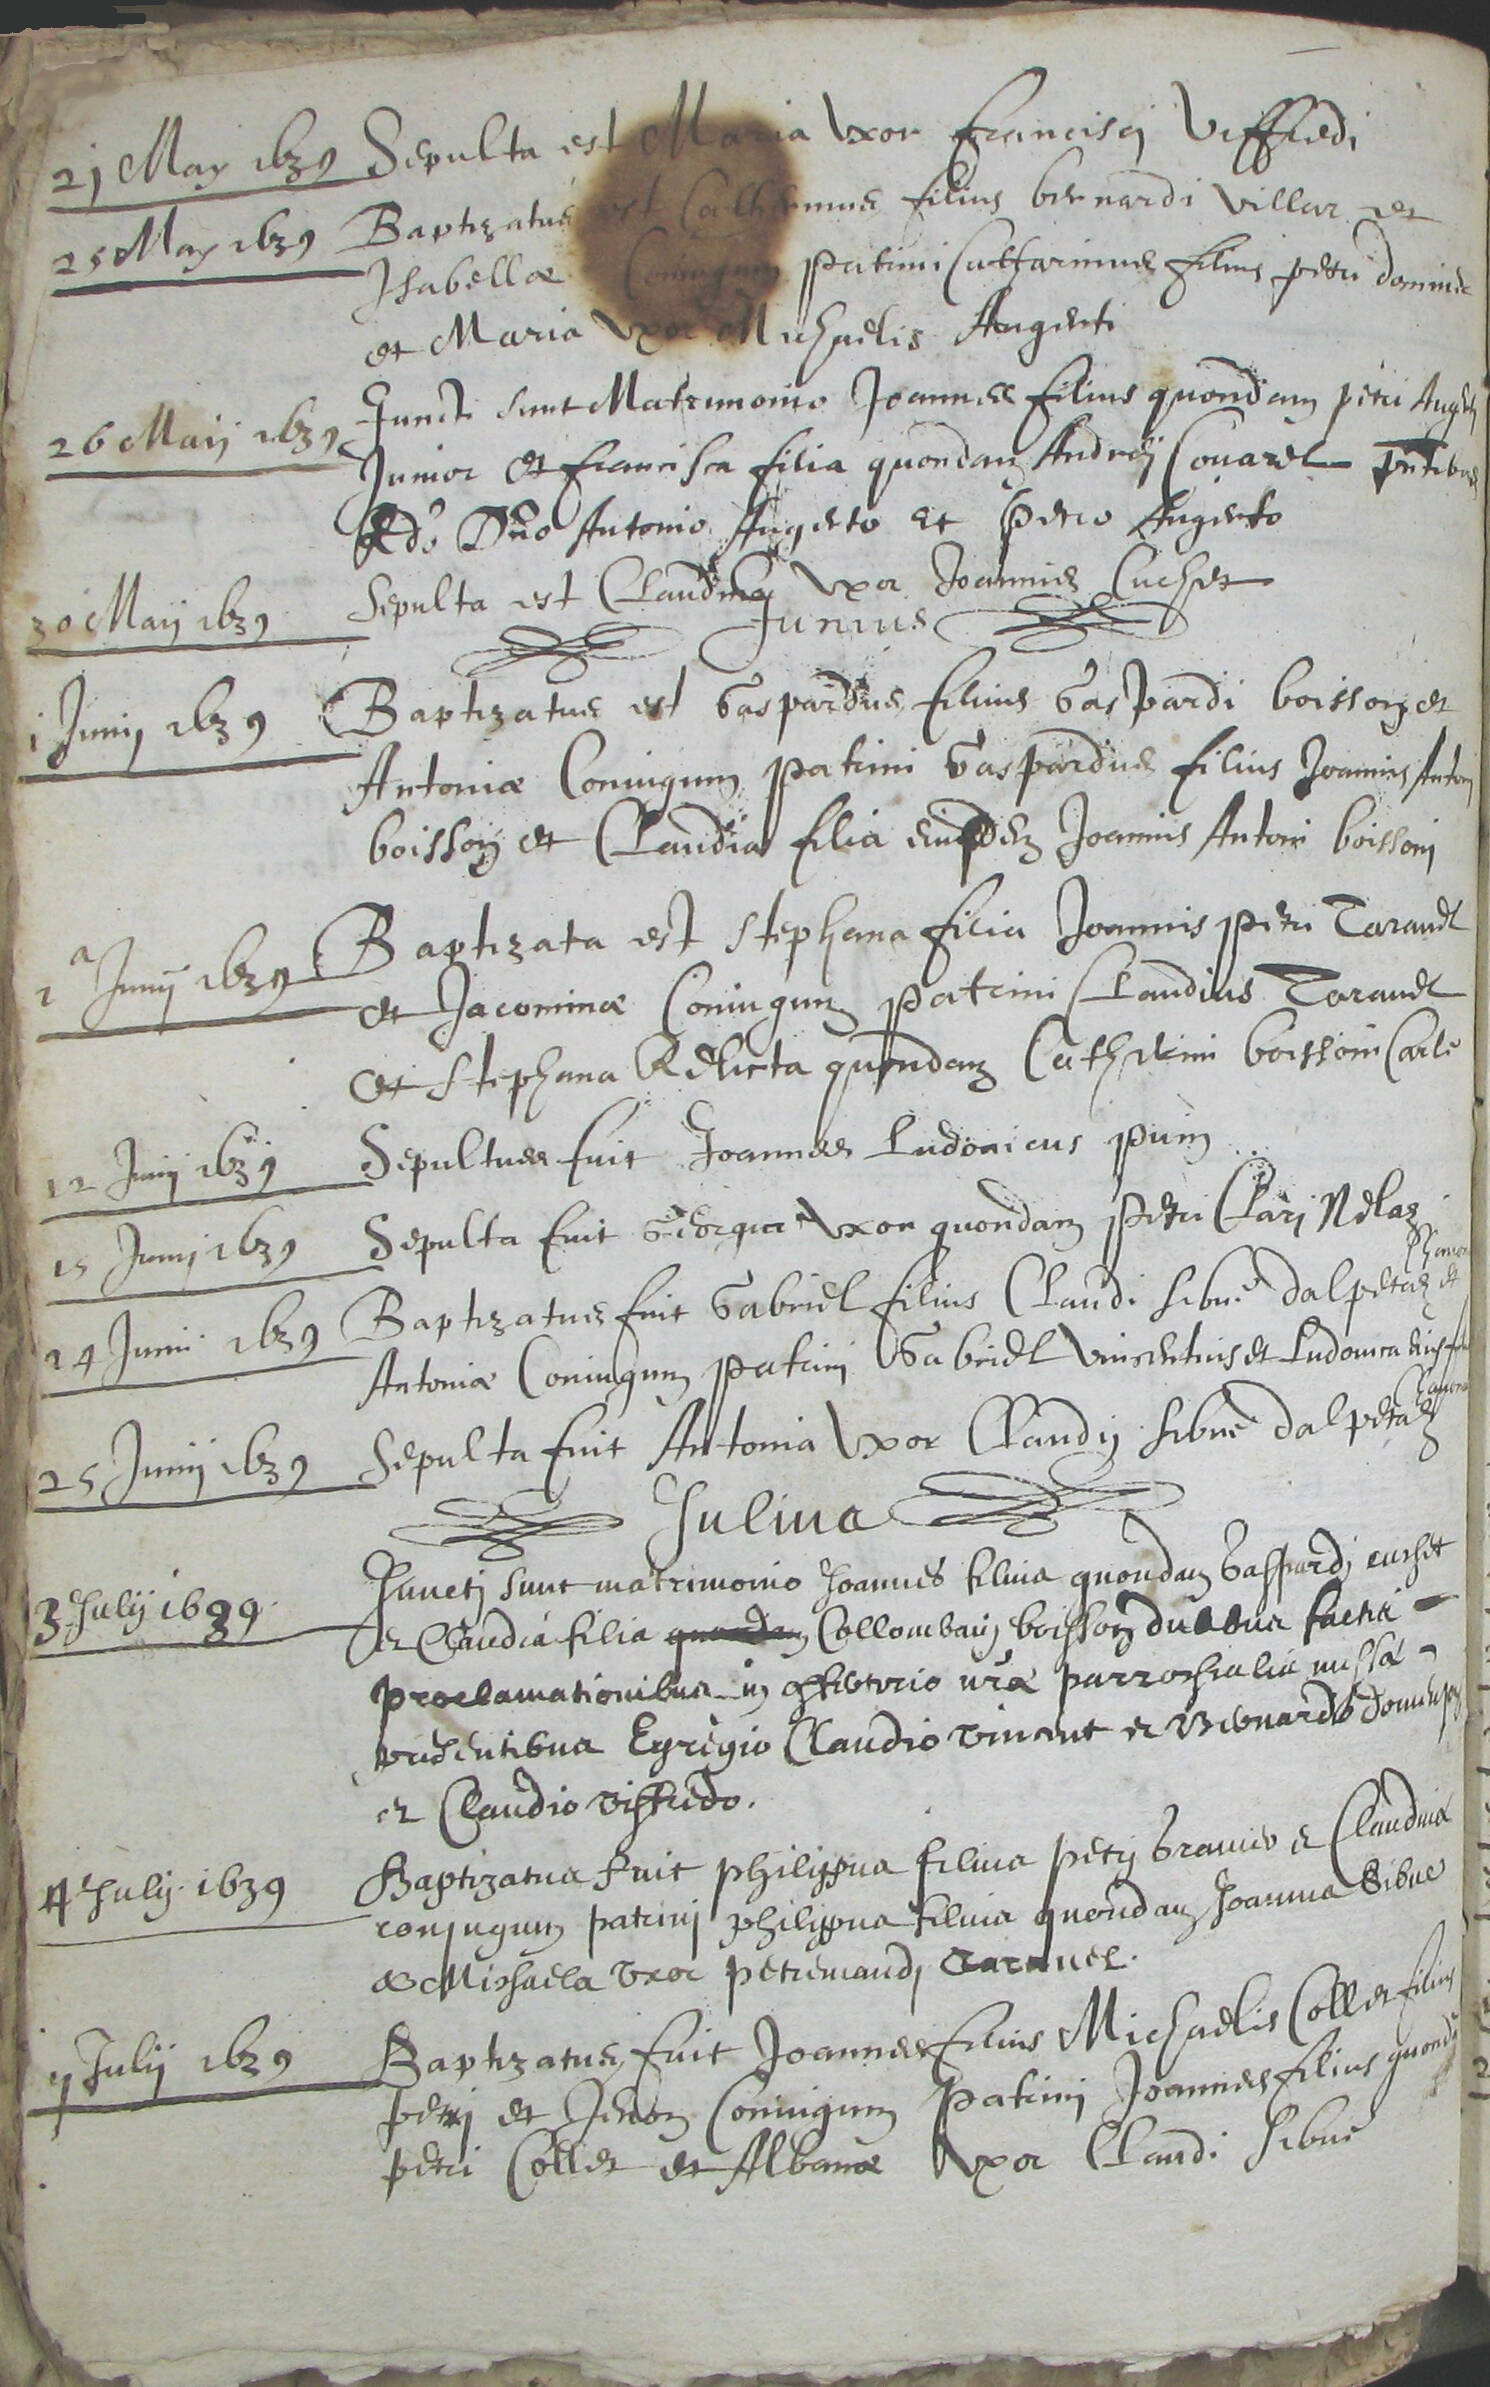 21 May 1639 Sepulta est Maria Vxor Francisci Viffredi
25 May 1639 Baptizatus est Catherinus filius bernardi Villar et
Isabellæ Coniugum patrini Cattarinus filius petri
et Maria Vxor Michaelis Augerti
26 Maij 1639 Juncti sunt Matrimonio Joannes filius quondam petri
Junior et Francisca filia quondam Andreæ
Rdo Dno Antonio Augerto et Petro Augerto
30 Maij 1639 Sepulta est Claudina Vxor Joannis Cuchet
Junius
1 Junij 1639 Baptizatus est Gaspardus filius Gaspardi boisson et
Antoniæ Coniugum patrini Gaspardus filius Joannis Antoni
boisson et Claudia filia eiusdem Joannis Antoni boissoni
1a Junij 1639 Baptizata est Stephana filia Joannis petri Taravel
et Jacominæ Coniugum patrini Claudius Taravel
et Stephana Relicta quondam Catherini boissoni Carle
12 Junij 1639 Sepultus fuit Joannes Ludovicus
15 Junij 1639 Sepulta fuit Georgia Vxor quondam Petri Clari
24 Junii 1639 Baptizatus fuit Gabriel filius Claudi sibué dalpetaz et
Antoniæ Coniugum patrini Gabriel Vincentius et Ludovica
25 Junij 1639 Sepulta fuit Antonia Vxor Claudij sibué dalpetaz
Julius
3 Julij 1639 Juncti sunt matrimonio Joannes filius quondam Gaspardj cuchet
et Claudia filia quondam Collombanj boisson duabus factis
proclamationibus in nræ parrochialis missæ
presentibus Egregio Claudio Vincent et Bernardo
et Claudio Viffredo.
4 Julij 1639 Baptizatus fuit philippus filius petrj et Claudinæ
conjugum patrinj philippus filius quondam Joannis Sibue
& Michaela Vxor petremandj Taravel.
7 Julij 1639 Baptizatus fuit Joannes filius Michaelis Collet filius
petrj et Coniugum Patrini Joannes filius quondam
petri Collet et Albanæ Vxor Claudi sibué